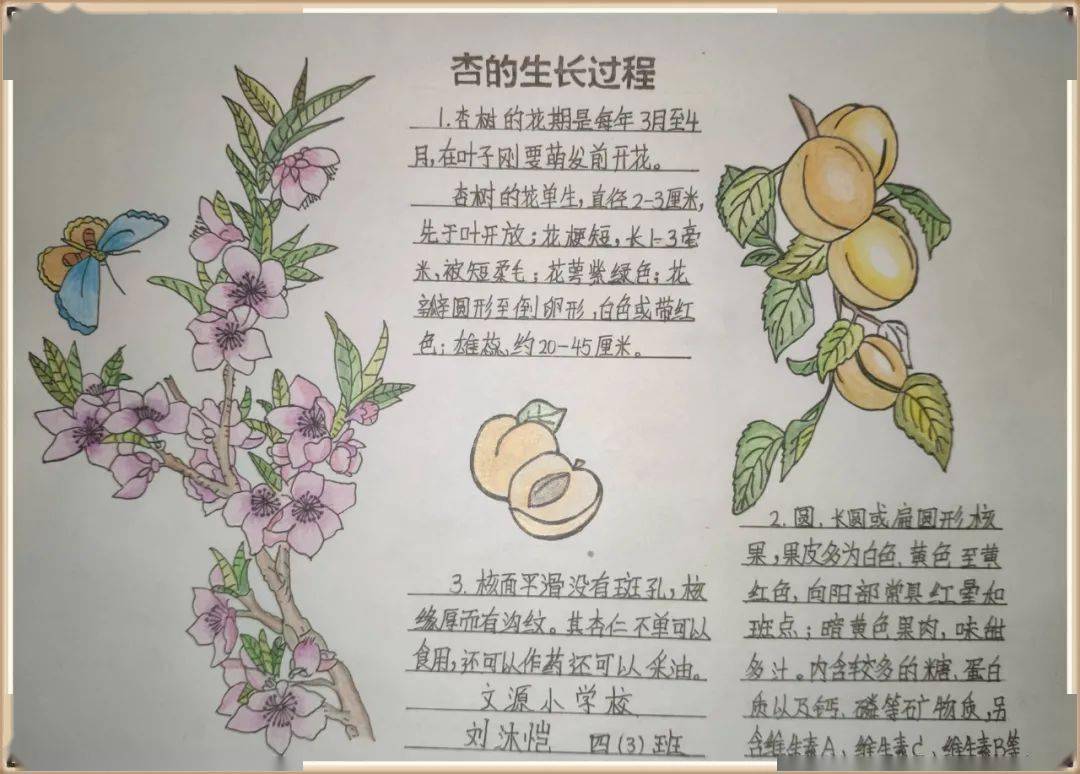 杏的生长过程
1.杏树的花期是每年3月至4
月,在叶子刚要萌发前开花。
杏树的花单生,直径2-3厘米,
先于叶开放;花梗短,长1-3毫
米,被短柔毛;花萼紫绿色;花
瓣圆形至倒卵形,白色或带红
色;雄蕊,约20-45厘米。
2.圆、长圆或扁圆形核
果,果皮多为白色、黄色至黄
红色,向阳部常具红晕和
斑点;暗黄色果肉,味甜
多汁。内含较多的糖、蛋白
质以及钙、磷等矿物质,另
含维生素A、维生素C、维生素B等
3.核面平滑没有斑孔,核
缘厚而有沟纹。其杏仁不单可以
食用,还可以作药还可以采油。
文源小学校
刘沐恺 四(3)班